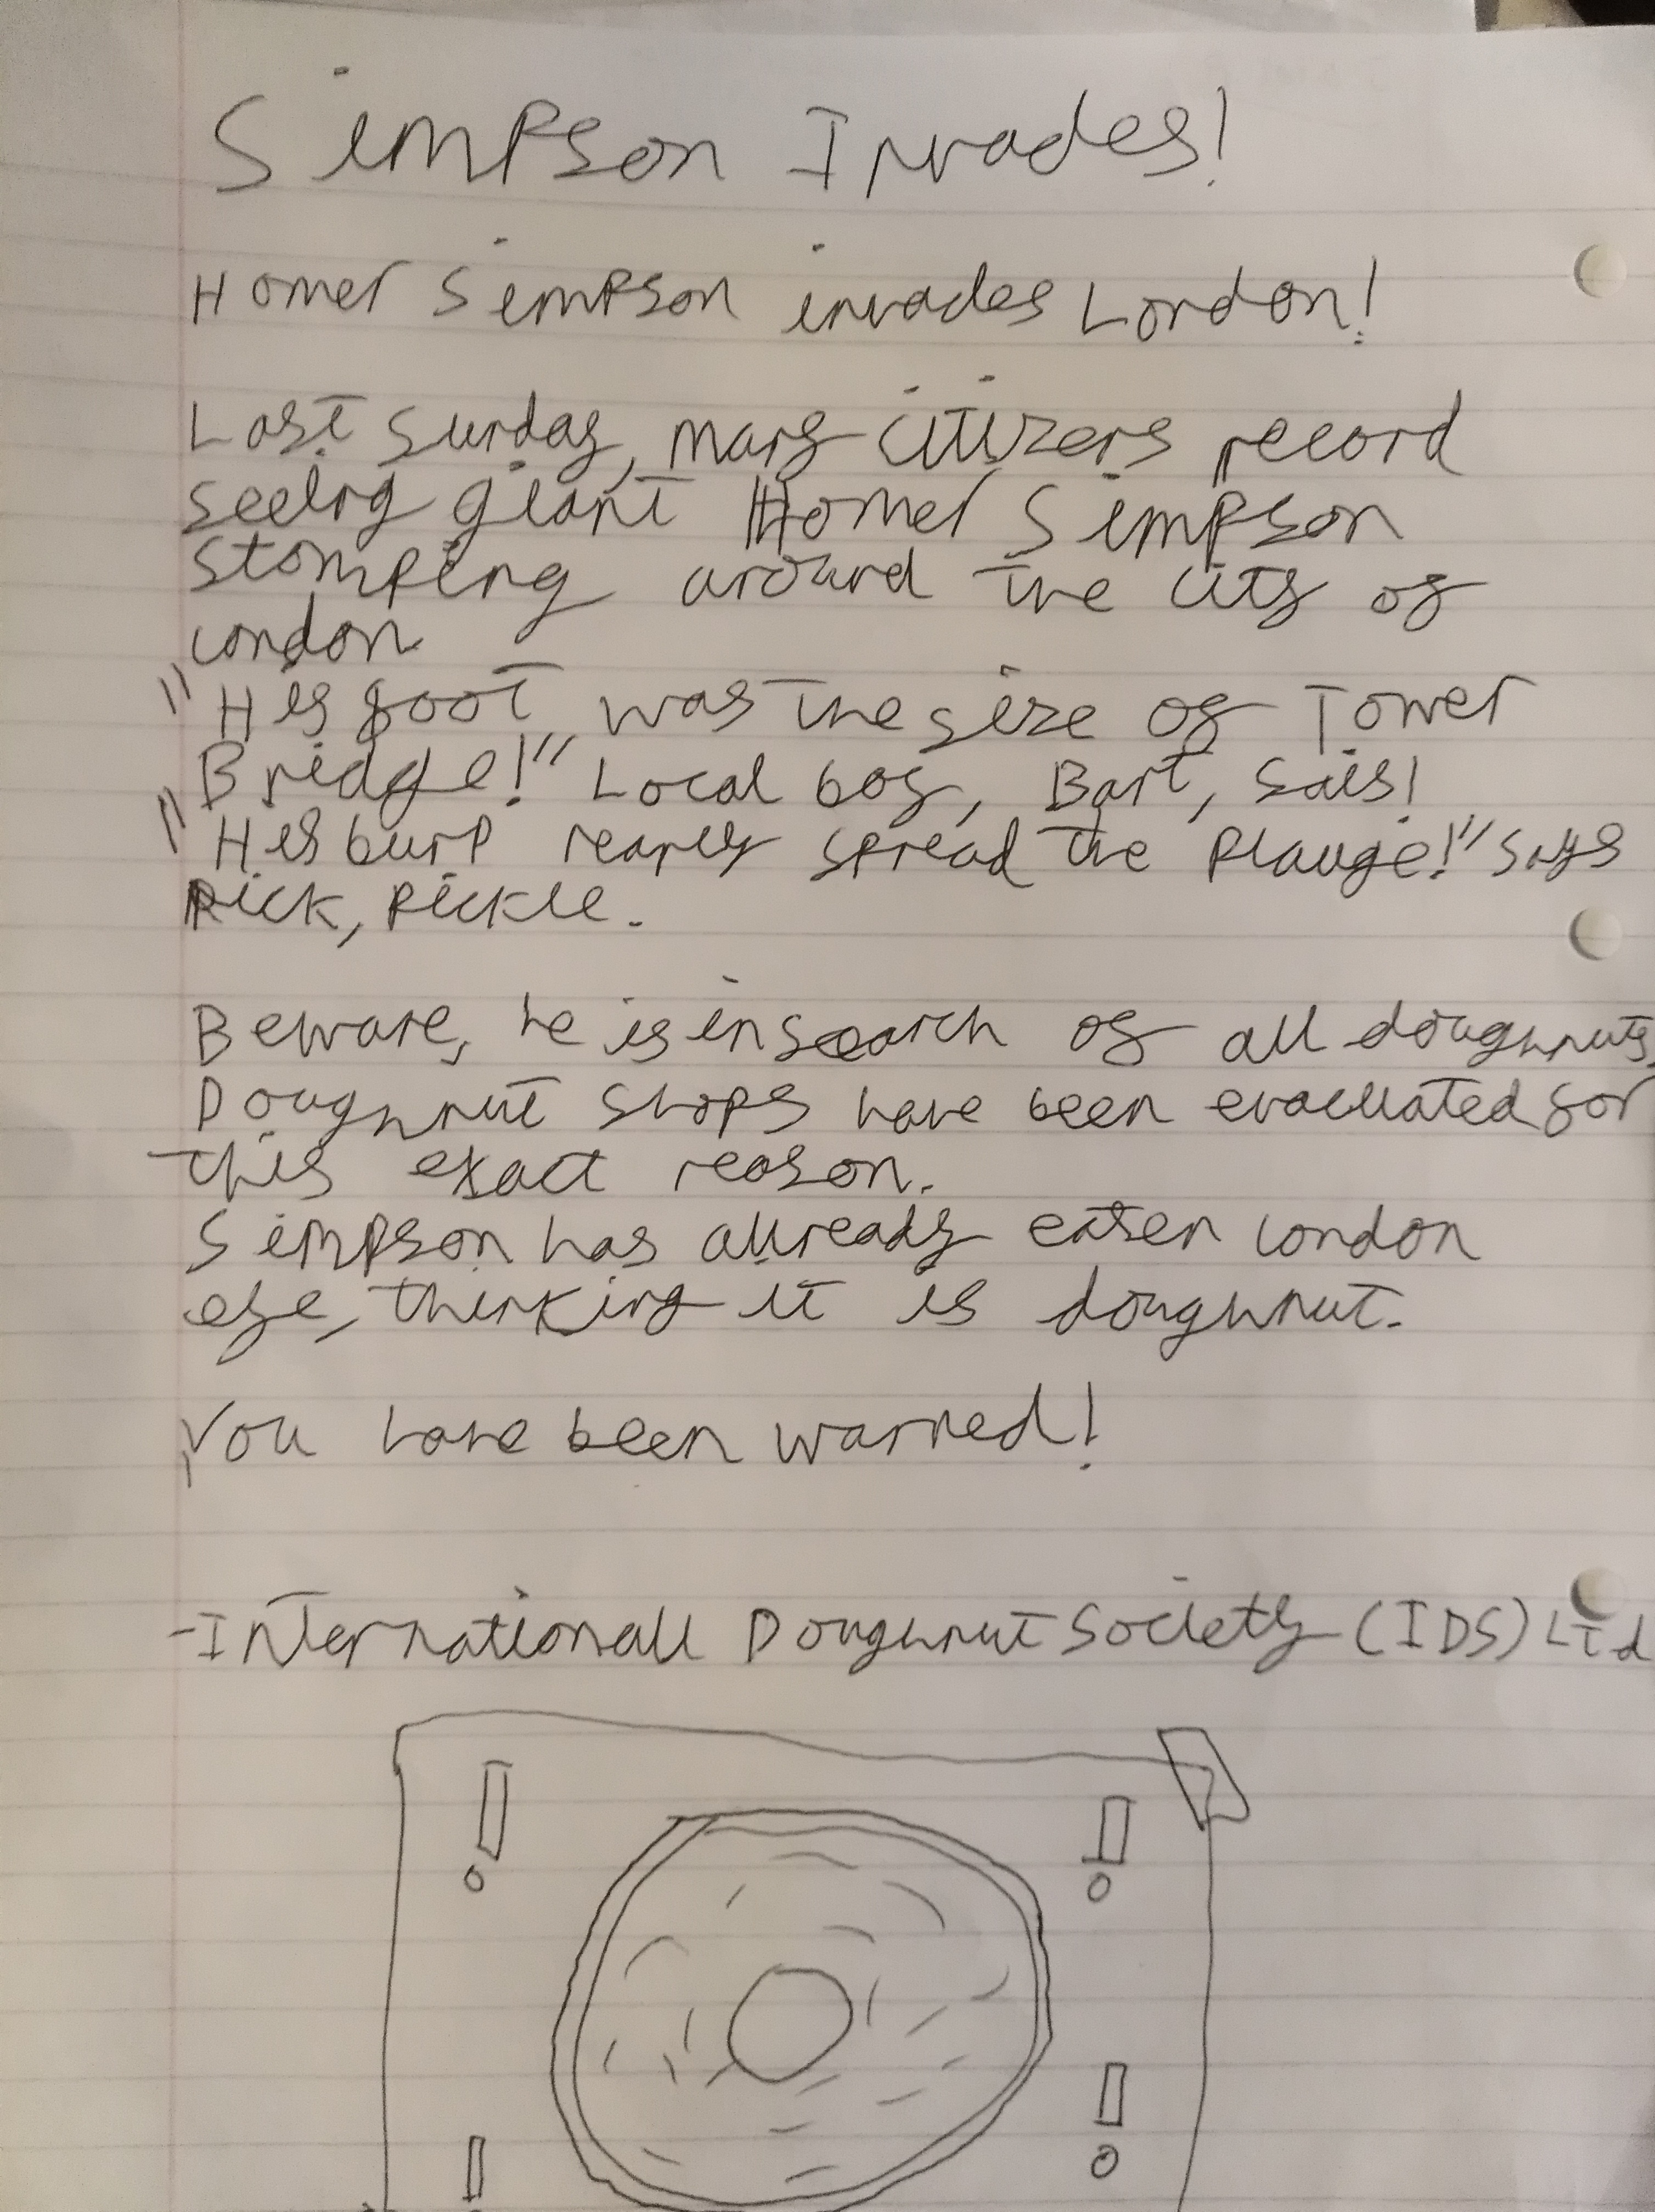 Simpson Invades!
Homer Simpson invades London!
Last sunday, many citizens record
seeing giant Homer Simpson
stomping around the city of
london
"His foot was the size of Tower
Bridge!" Local boy, Bart, sais!
"His burp nearly spread the Plauge!" says
Rick, Pickle.
Beware, he is in search of all doughnuts.
Doughnut shops have been evacuated for
this exact reason.
Simpson has allready eaten london
eye, thinking it is doughnut.
You have been warned!
-Internationall Doughnut Society (IDS) Ltd
! !
! !